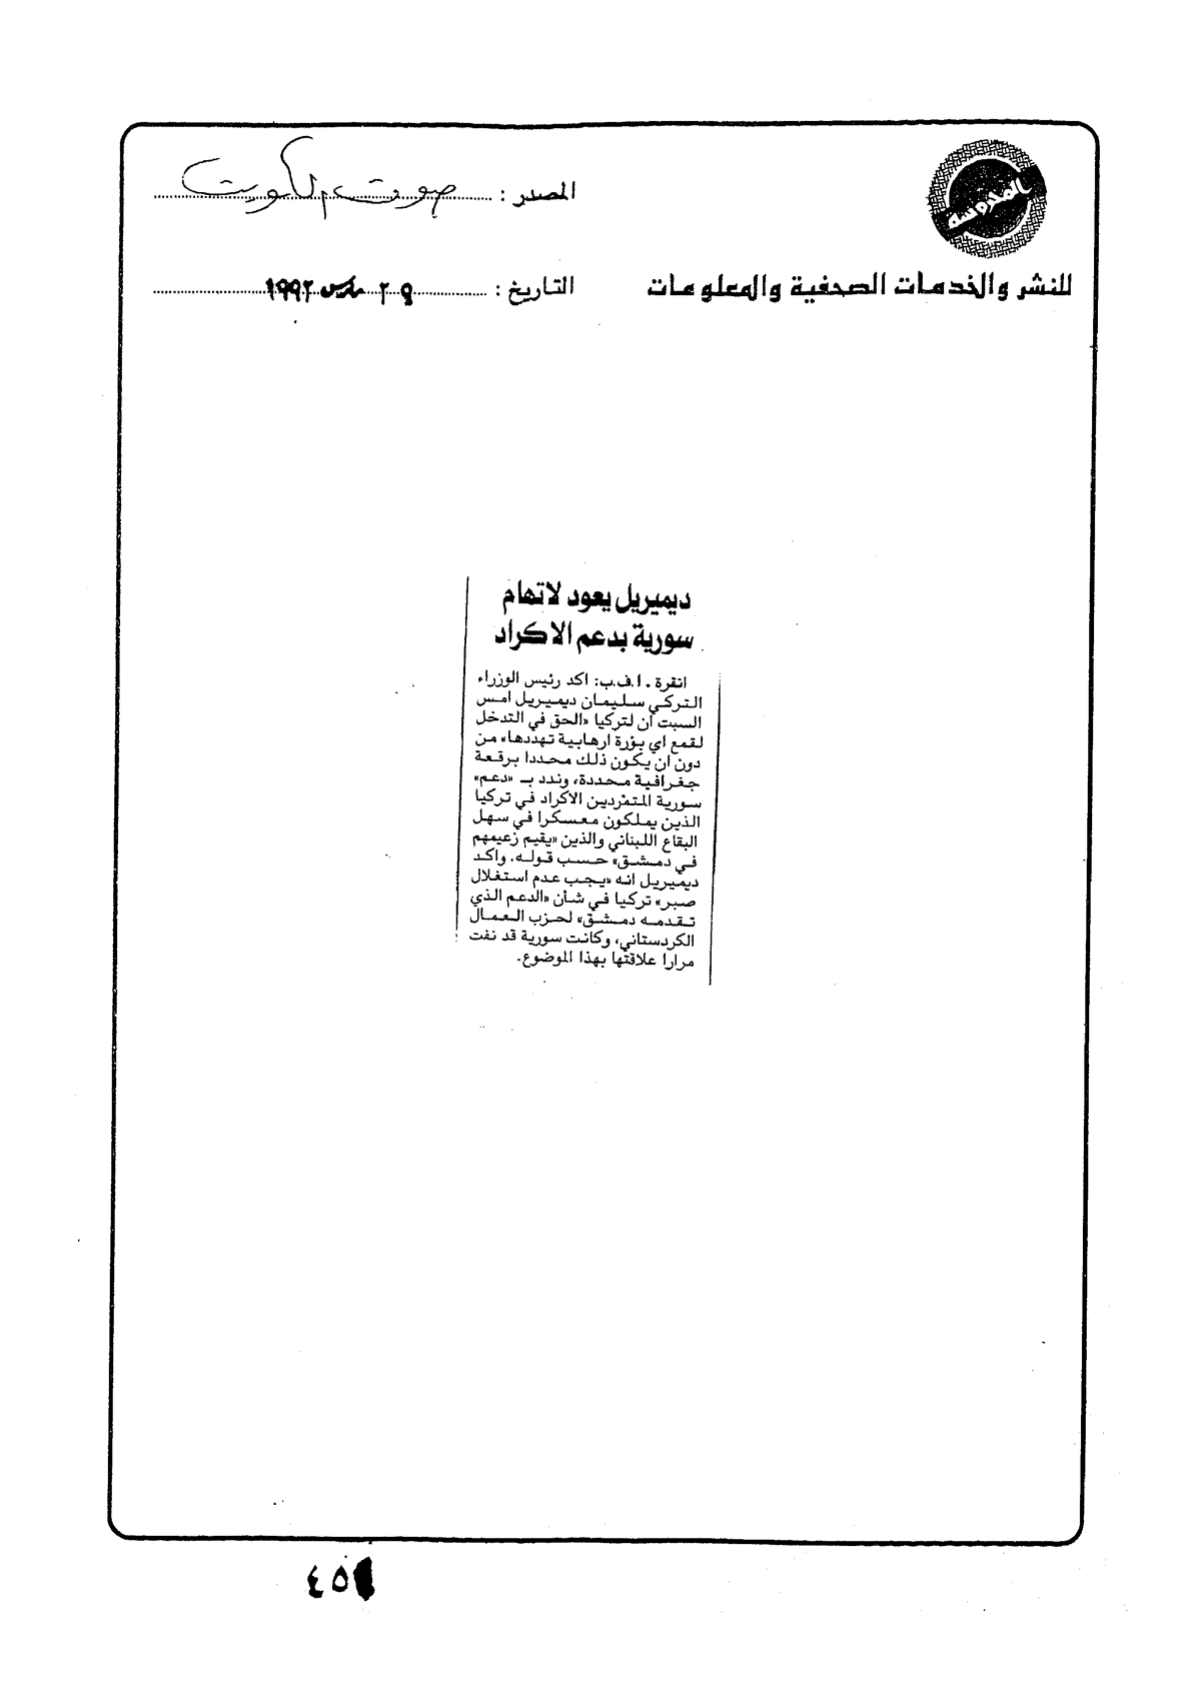 المصدر : صوت الكويت
للنشر والخدمات الصحفية والمعلومات
التاريخ : ٢٩ مارس ١٩٩٢
ديميريل يعود لاتهام
سورية بدعم الاكراد
انقرة ـ ا.ف.ب: اكد رئيس الوزراء
التركي سليمان ديميريل امس
السبت أن لتركيا «الحق في التدخل
لقمع اي بؤرة ارهابية تهددها» من
دون ان يكون ذلك محددا برقعة
جغرافية محددة، وندد بـ «دعم»
سورية المتمردين الاكراد في تركيا
الذين يملكون معسكرا في سهل
البقاع اللبناني والذين «يقيم زعيمهم
في دمشق» حسب قوله. واكد
ديميريل انه «يجب عدم استغلال
صبر» تركيا في شأن «الدعم الذي
تقدمه دمشق» لحزب العمال
الكردستاني، وكانت سورية قد نفت
مرارا علاقتها بهذا الموضوع.